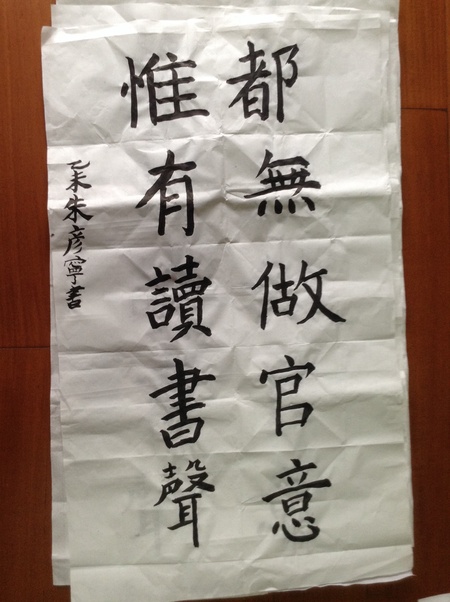 都無做官意
惟有讀書聲
乙未朱彦寧書